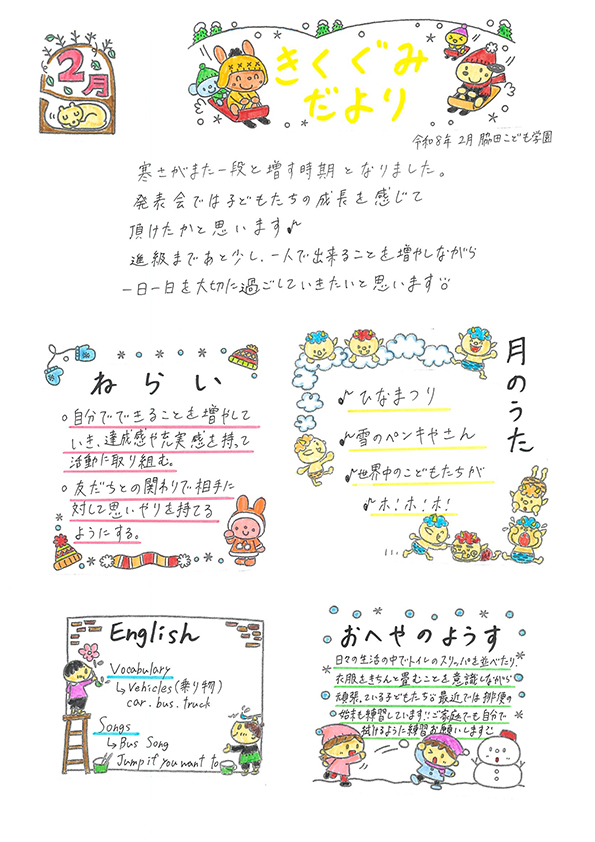 2月
きくぐみ
だより
令和8年 2月 脇田こども学園
寒さがまた一段と増す時期となりました。
発表会では子どもたちの成長を感じて
頂けたかと思います♪
進級まであと少し、一人で出来ることを増やしながら
一日一日を大切に過ごしていきたいと思います
ねらい
○自分でできることを増やして
いき、達成感や充実感を持って
活動に取り組む。
○友だちとの関わりで相手に
対して思いやりを持てる
ようにする。
月のうた
♪ひなまつり
♪雪のペンキやさん
♪世界中のこどもたちが
♪ホ!ホ!ホ!
English
Vocabulary
↳Vehicles(乗り物)
car.bus.truck
Songs
↳Bus Song
Jump if you want to
おへやのようす
日々の生活の中でトイレのスリッパを並べたり、
衣服をきちんと畳むことを意識しながら
頑張っている子どもたち 最近では排便の
始末も練習しています!!ご家庭でも自分で
拭けるように練習お願いします